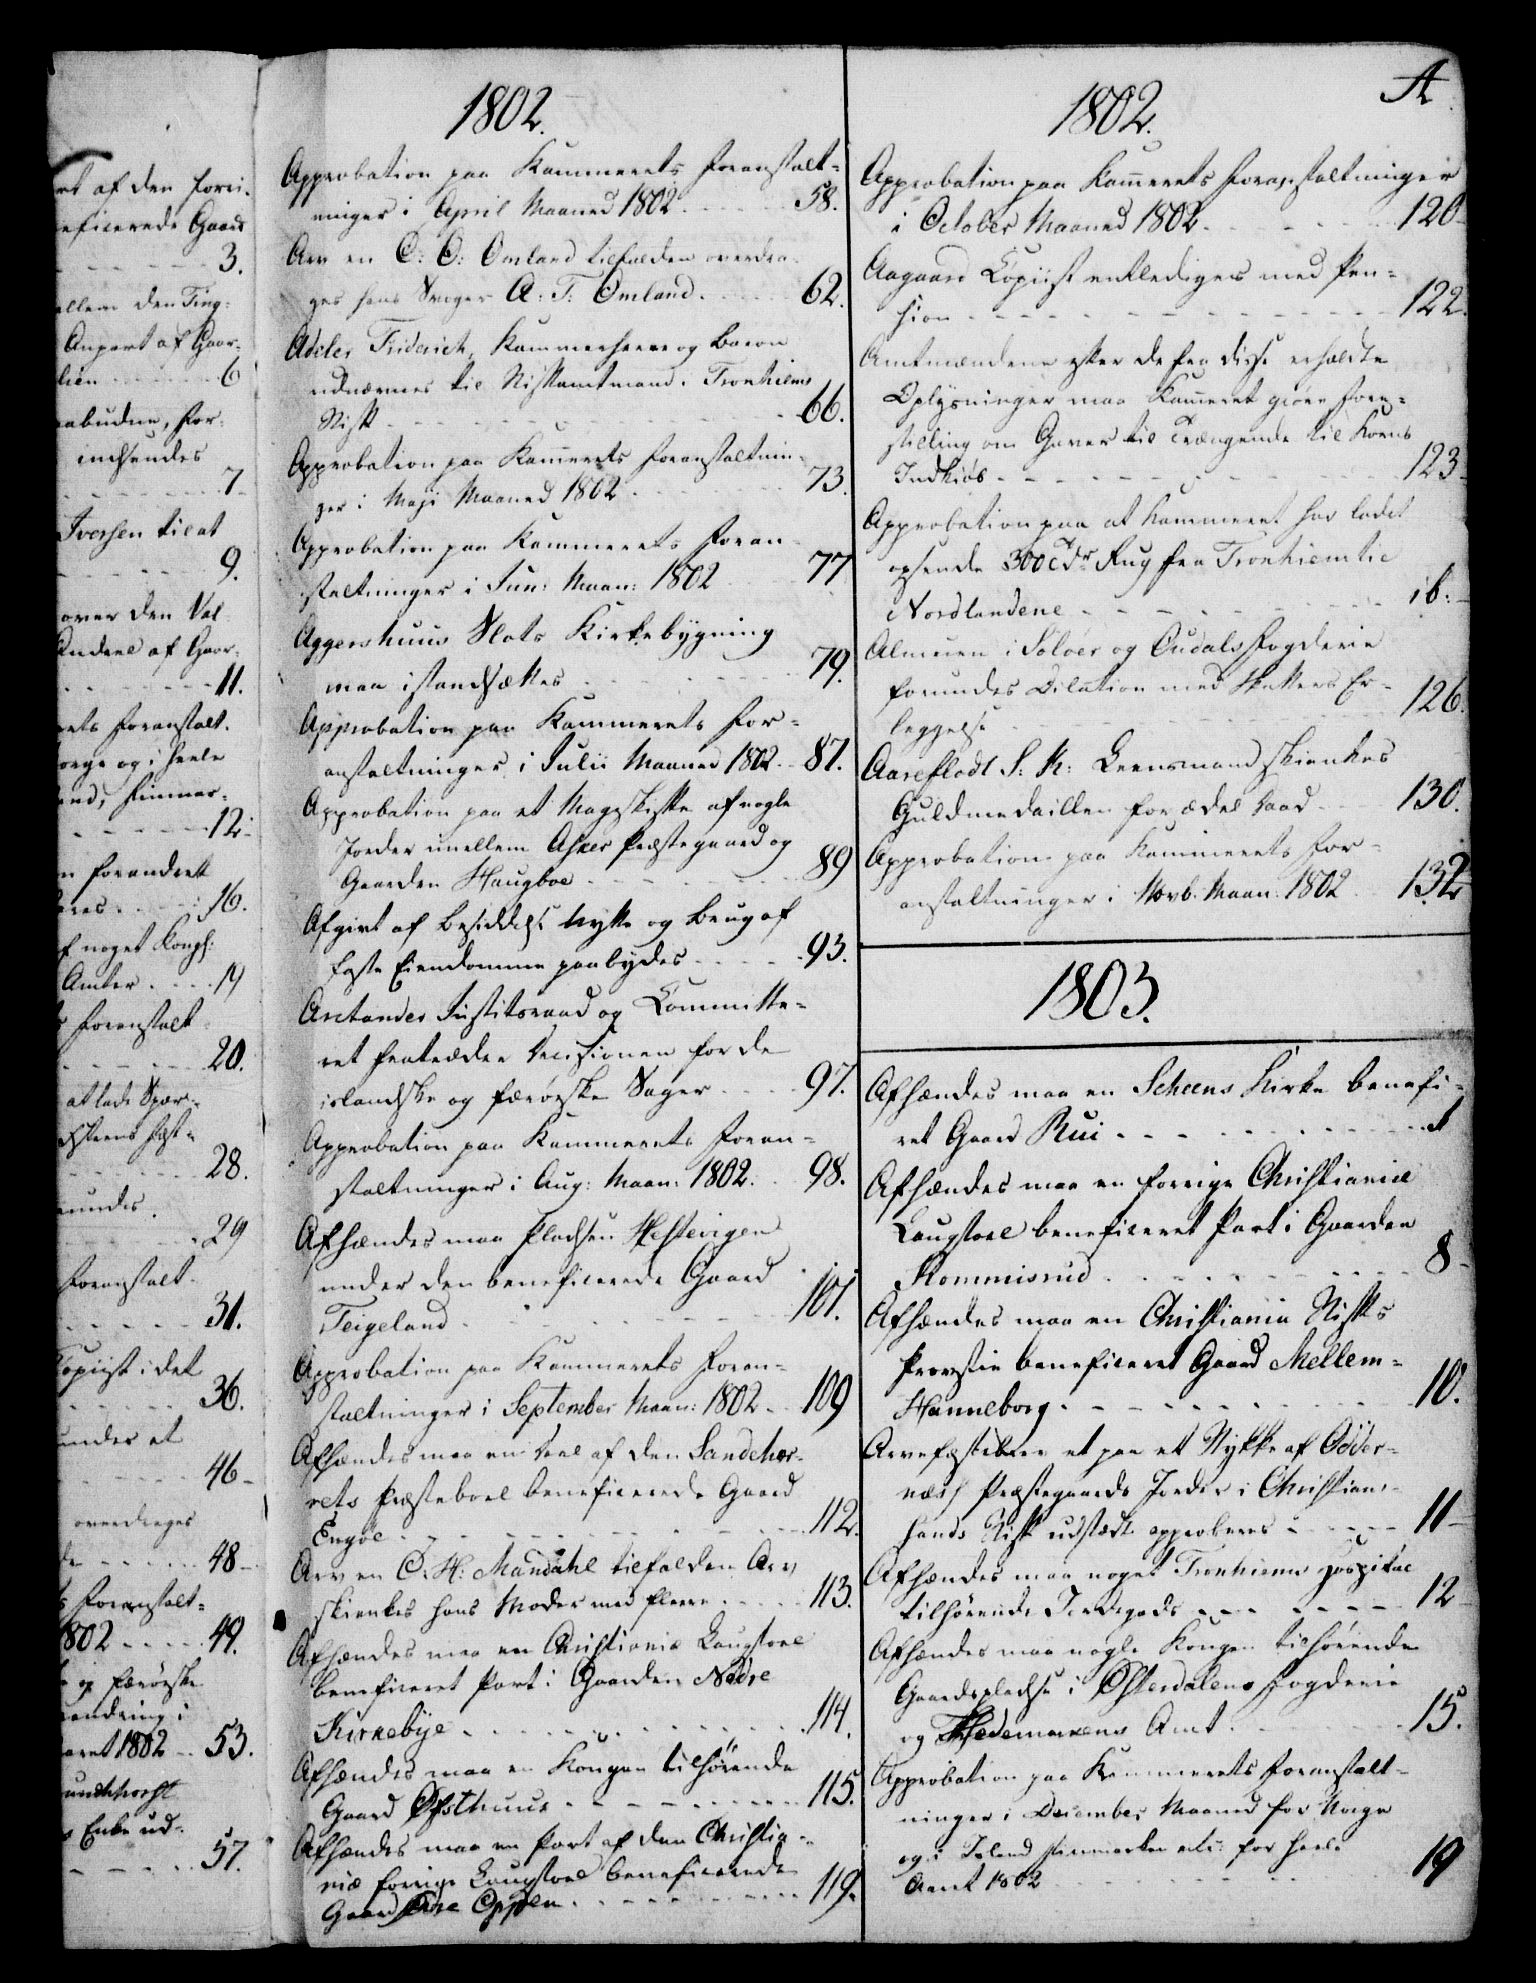 A
rt af den forri-
eficerede Gaard
3.
ellem den Ting-
Anpart af Gaar-
lien 6
abudne, for-
indsendes
7
Iversen til at
9.
over den Val
Andeel af Gaar-
11.
rets Foranstalt.
orge og i heele
and, Finmar-
12.
n forandret
eres 16.
f noget Kongl:
Amter 19
s Foranstalt
20.
at lade Spær-
28.
undes
29
Foranstalt
31.
Copiist i det
36.
under et
46
overdrages
de 48
s Foranstalt-
1802 49.
og færøeske
vendring i
aaret 1802 53.
s Enke ud-
57.
1802.
Approbation paa Kammerets Foranstalt-
ninger i April Maaned 1802 58.
Arv en C: O: Omland tilfalden overdra-
ges hans Svoger A: T: Omland 62.
Adeler Friderich, Kammerherre og Baron
udnævnes til Stiftamtmand i Tronhiems
Stift 66.
Approbation paa Kammerets Foranstaltnin-
ger i Maji Maaned 1802 73.
Approbation paa Kammerets Foran-
staltninger i Jun: Maan: 1802 77
Aggershuus Slots Kirkebygning
maa istandsættes 79.
Approbation paa Kammerets For-
anstaltninger i Julii Maaned 1802 87.
Approbation paa et Mageskifte af nogle
Jorder imellem Asker Præstegaard og
Gaarden Haugboe 89
Afgivt af Besiddelse Nytte og Brug af
faste Eiendomme paabydes 93.
Arctander Justitsraad og Committe-
ret fratræder Decisionen for de
islandske og færøeske Sager 97.
Approbation paa Kammerets Foran-
staltninger i Aug: Maan: 1802. 98.
Afhændes maa Pladsen Hestevigen
under den beneficerede Gaard
Teigeland 101.
Approbation paa Kammerets Foran-
staltninger i September Maan: 1802 109
Afhændes maa en Deel af den Sandeher-
rets Præsteboel beneficerede Gaard
Engöe 112.
Arv en C. H: Mandahl tilfalden Arv
skienkes hans Moder med fleere 113.
Afhændes maa en Christianiæ Laugstoel
beneficeret Part i Gaarden Nedre
Kirkebye 114.
Afhændes maa en Kongen tilhørende
Gaard Ofsthuus 115.
Afhændes maa en Part af den Christia-
niæ forrige Laugstoel beneficerende
Gaard Oppen 119.
1802.
Approbation paa Kam̄erets Foranstaltninger
i October Maaned 1802 120
Aagaard Copiist entlediges med Pen-
sion 122.
Amtmændene efter de fra disse erholdte
Oplysninger maa Kam̄eret giøre Fore-
stilling om Gaver til Trængende til Korns
Indkiøb 123
Approbation paa at Kammeret har ladet
opsende 300 Tdr Rug fra Tronhiem til
Nordlandene ib:
Almuen i Soløer og Oudals Fogderie
forundes Dilation med Skatters Er-
leggelse 126.
Aareflodt S: K: Leensmand skienkes
Guldmedaillen for ædel Daad 130.
Approbation paa Kammerets For-
anstaltninger i Novb. Maan: 1802 132
1803.
Afhændes maa en Scheens Kirke benefi-
ret Gaard Rui 1
Afhændes maa en forrige Christianiæ
Laugstoel beneficeret Part i Gaarden
Kommisrud 8
Afhændes maa en Christiania Stifts
Provstie beneficeret Gaard Mellem-
Hanneborg 10.
Arvefæstebrev et paa et Stykke af Odder-
næss Præstegaards Jorder i Christian-
sands Stift udstædt approberes 11
Afhændes maa noget Tronhiems Hospital
tilhørende Jordegods 12
Afhændes maa nogle Kongen tilhørende
Gaardepladse i Østerdalens Fogderie
og Hedemarkens Amt 15.
Approbation paa Kammerets Foranstalt-
ninger i December Maaned for Norge
og i Island Finmarken etc: for heele
Aaret 1802 19